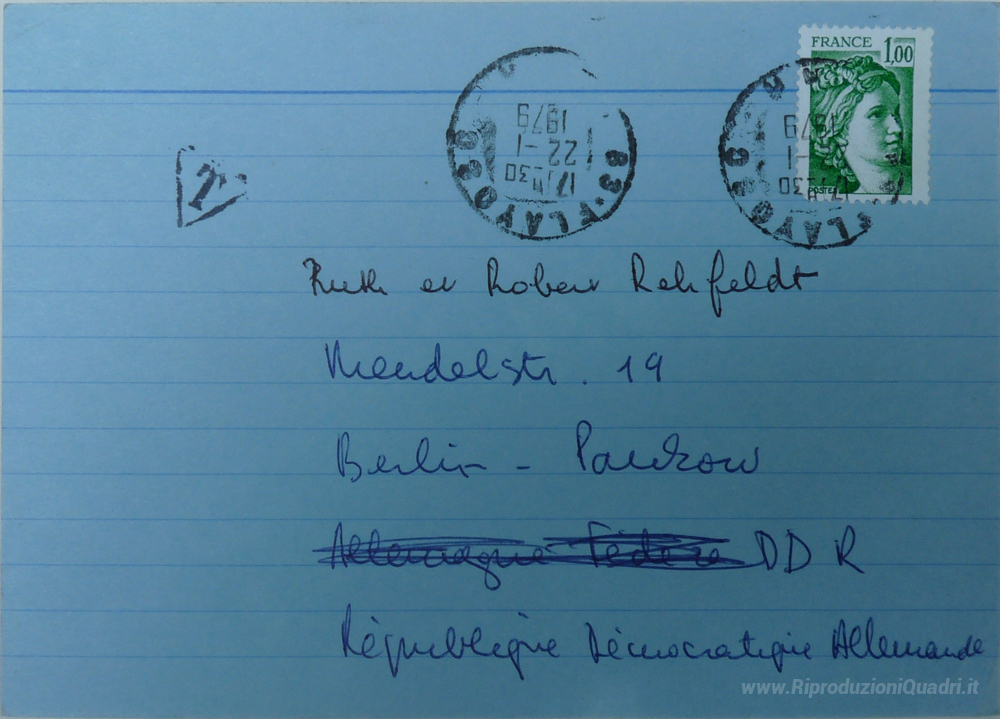 FRANCE 1,00
POSTES
17 H30
22-1
1979
83-FLAYOSC
17 H30
-1
1979
FLAYOSC
T
Ruth et Robert Rehfeldt
Mendelstr. 19
Berlin - Pankow
Allemagne Fédéra DDR
République Démocratique Allemande
www.RiproduzioniQuadri.it